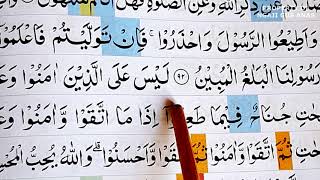 ذِكْرِ اللّٰهِ وَعَنِ الصَّلٰوةِ
وَاَطِيْعُوا الرَّسُوْلَ وَاحْذَرُوْا ۚ فَاِنْ تَوَلَّيْتُمْ فَاعْلَمُوْٓا
رَسُوْلِنَا الْبَلٰغُ الْمُبِيْنُ ﴿٩٢﴾ لَيْسَ عَلَى الَّذِيْنَ اٰمَنُوْا وَعَ
حٰتِ جُنَاحٌ فِيْمَا طَعِمُوْٓا اِذَا مَا اتَّقَوْا وَّاٰمَنُوْا وَعَ
حٰتِ ثُمَّ اتَّقَوْا وَّاٰمَنُوْا ثُمَّ اتَّقَوْا وَّاَحْسَنُوْا ۗ وَاللّٰهُ يُحِبُّ الْمُحْسِ